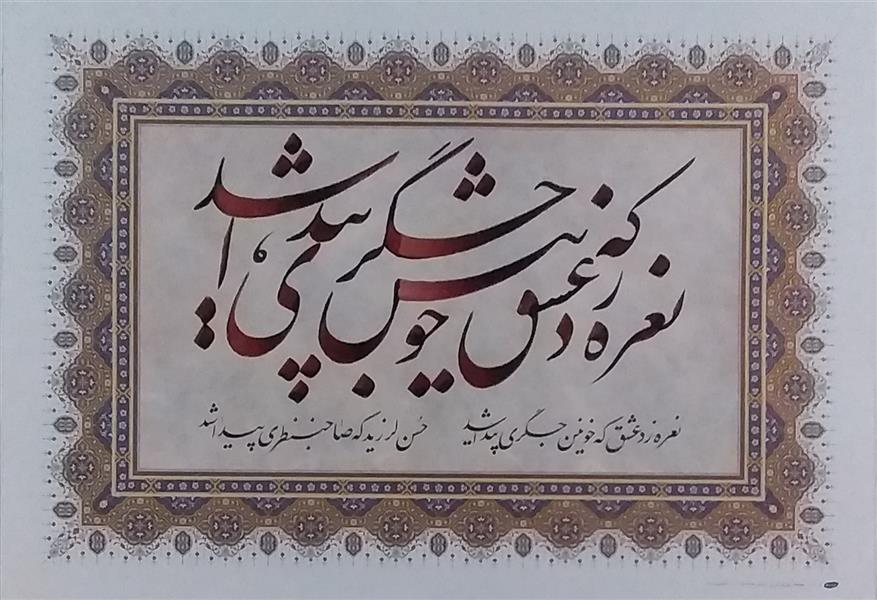 نعره زد عشق که خونین جگری پیدا شد
نعره زد عشق که خونین جگری پیدا شد حسن لرزید که صاحب نظری پیدا شد